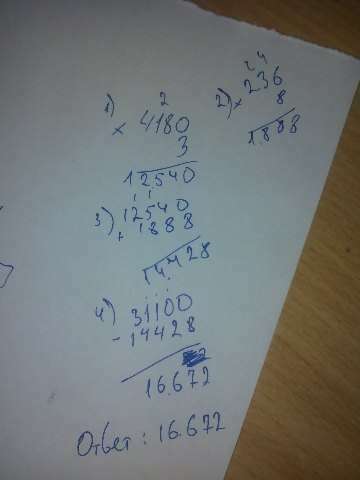 1) 2
× 4180
3
12540
2) 24
× 236
8
1.888
3) 12540
+ 1888
14.428
4) 31100
- 14428
16.672
Ответ: 16.672